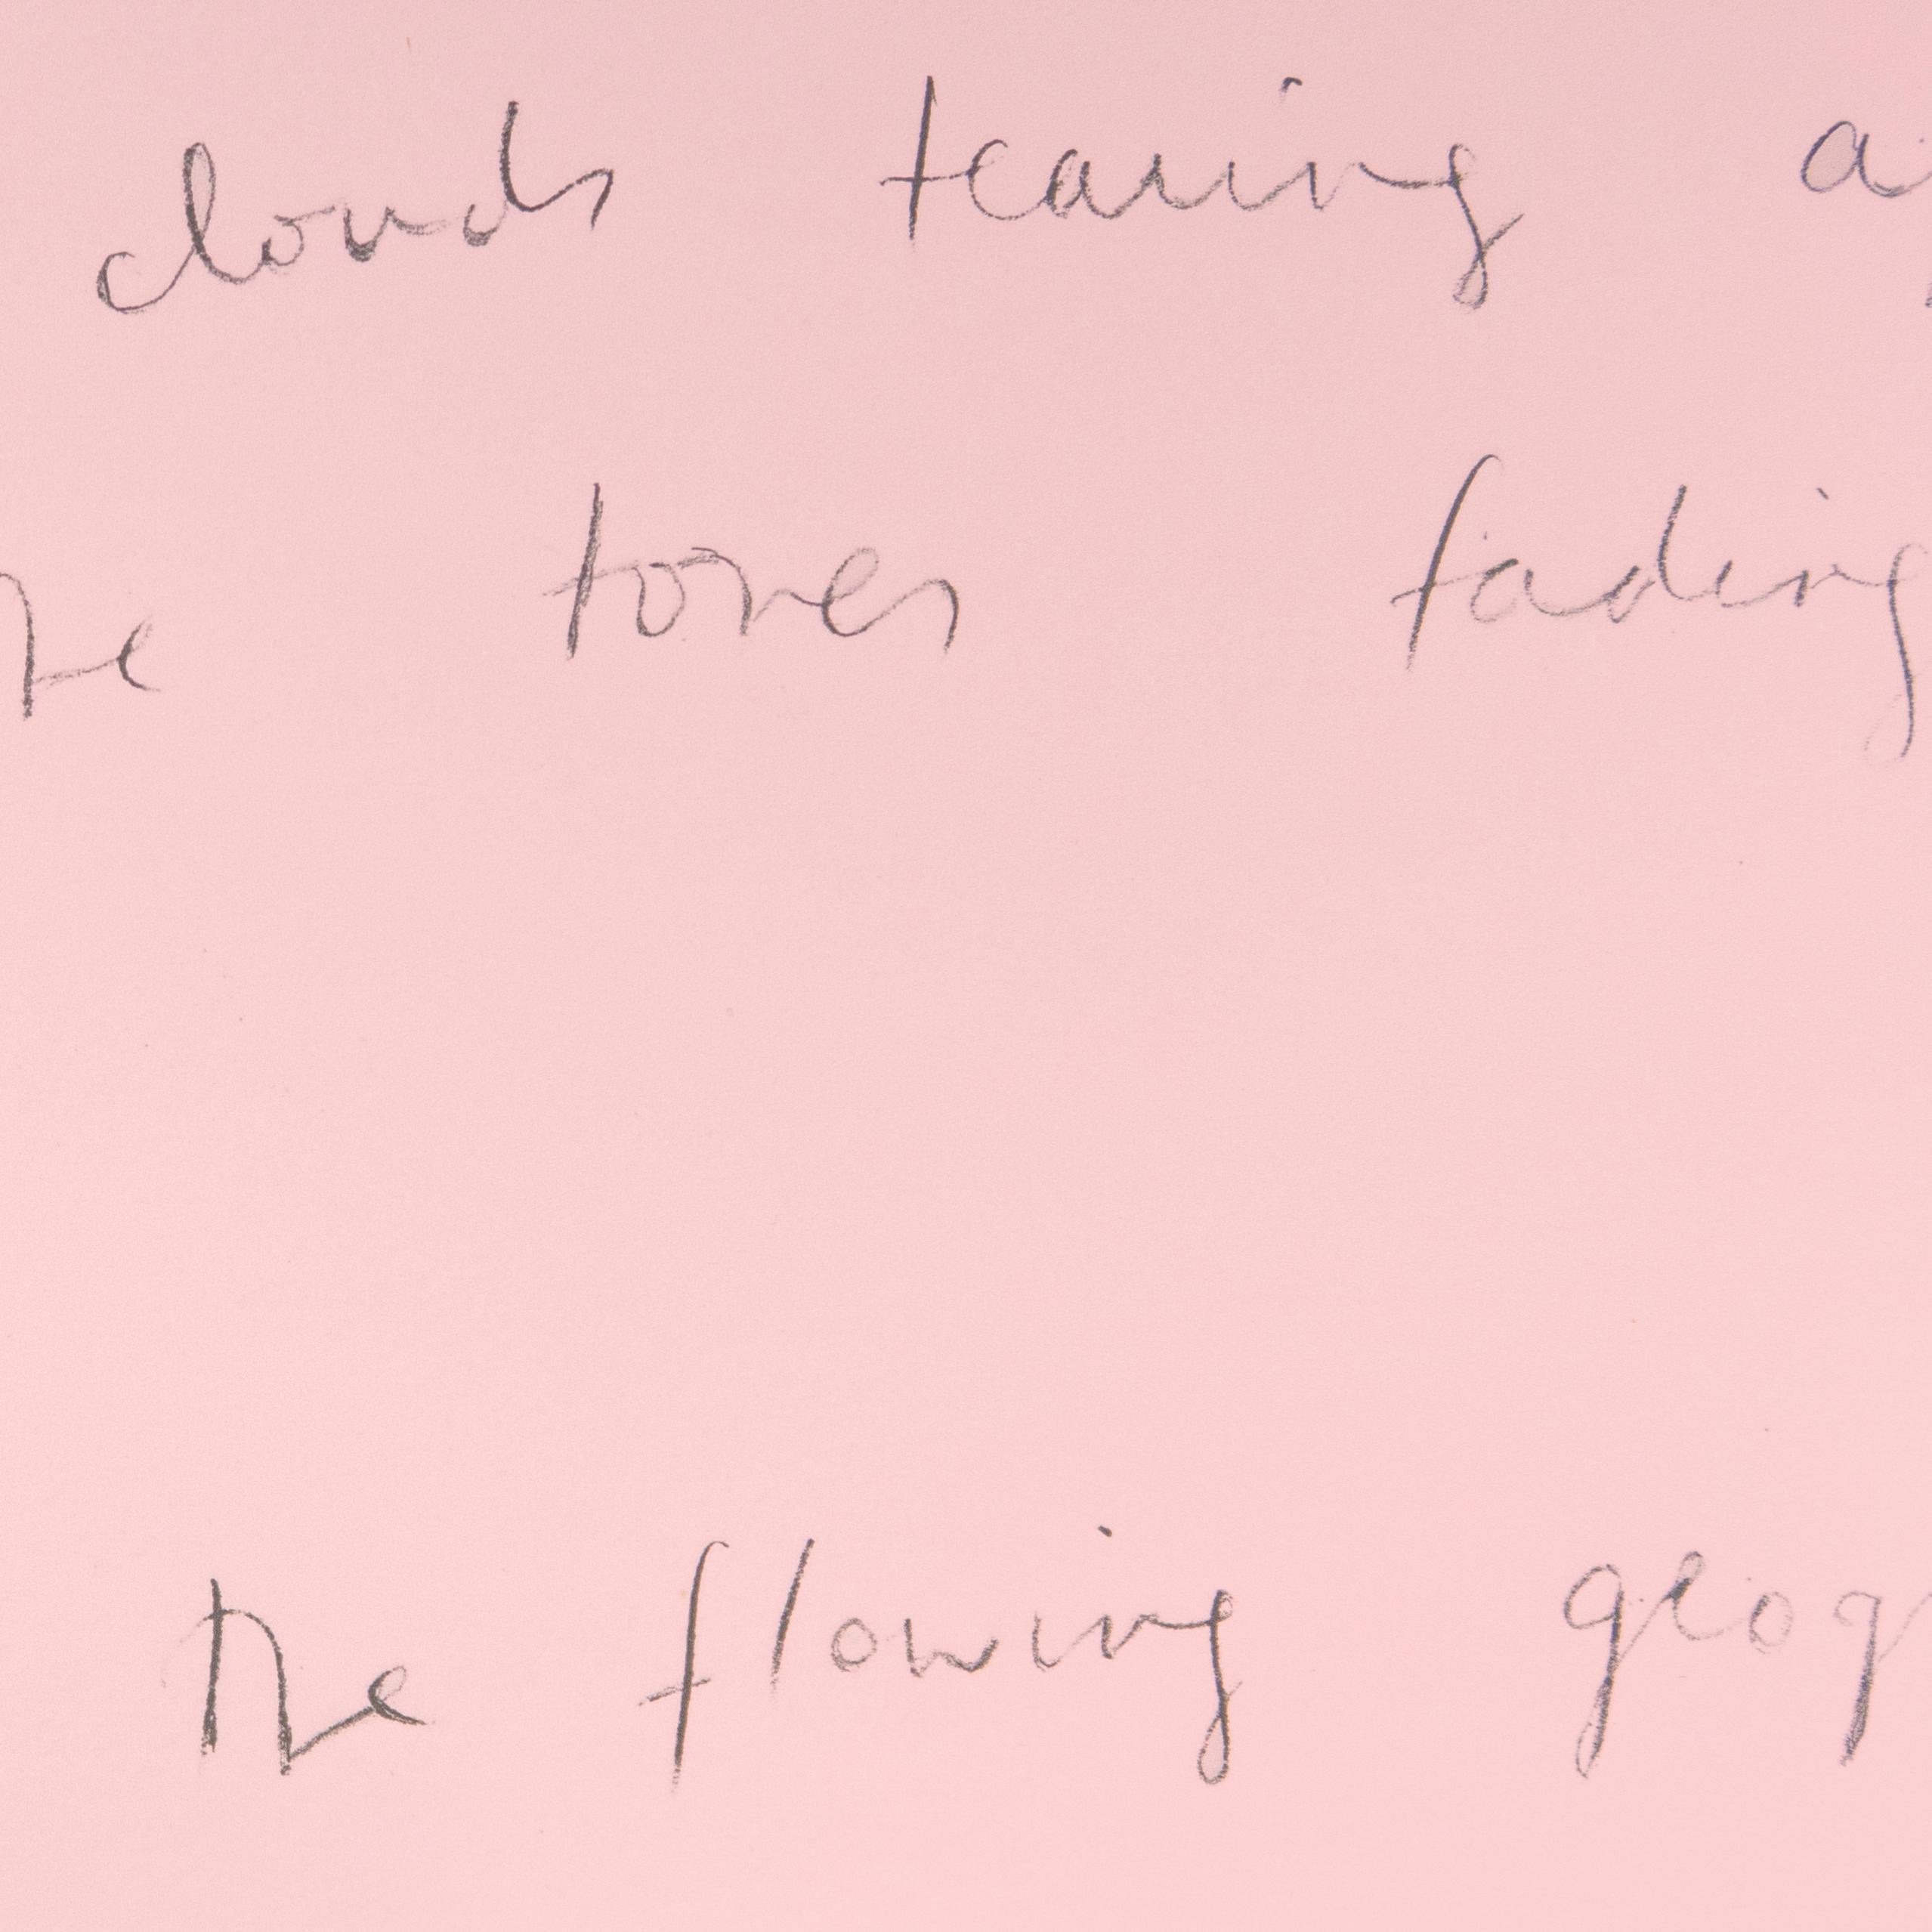 clouds tearing a
he tones fading
The flowing geog